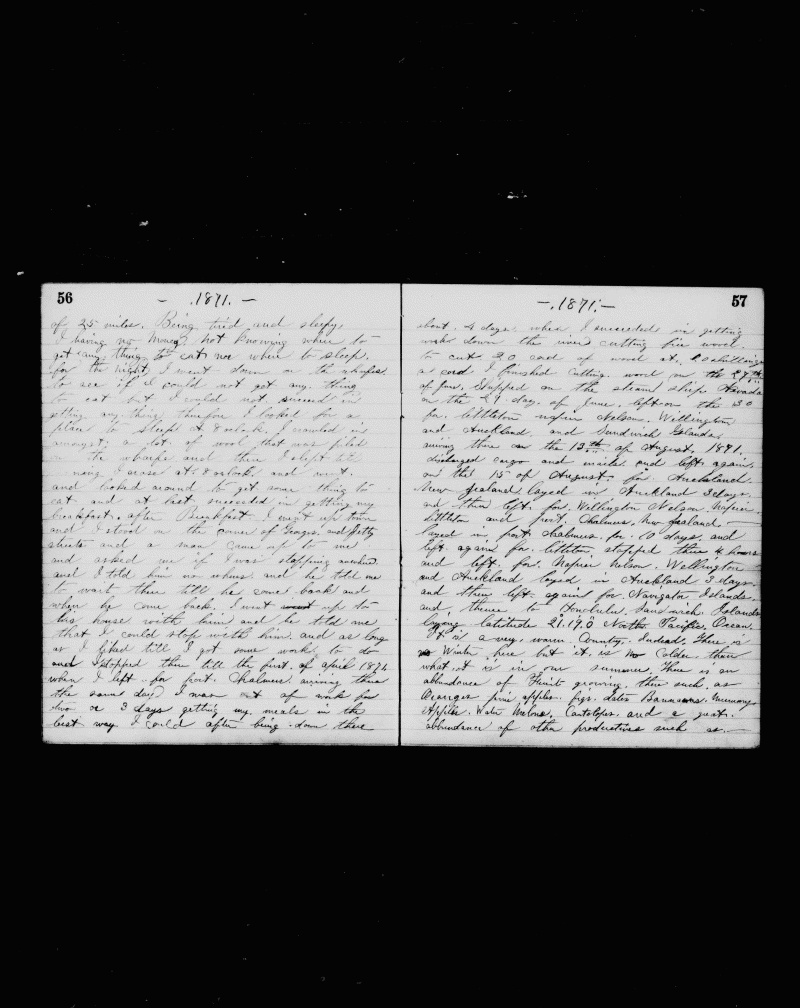 56
- .1871. -
of 25 miles. Being tired and sleepy,
I having no Money, not Knowing where to
get any thing to eat nor where to sleep.
for the night, I went down on the wharfs
to see if I could not get any thing
to eat but I could not succeed in
getting any thing, therefore I looked for a
place to sleep at 8 oclock, I crawled in
amongst; a lot of wool that was piled
on the wharfs and there I slept till
morning I arose at 8 oclock and went
and looked around to get some thing to
eat. and at last succeeded in getting my
breakfast. after Breakfast I went up town
and I stood on the corner of Georges, and Jetty
streets and a man came up to me
and asked me if I was stopping
and I told him no where and he told me
to wait there till he come back and
when he come back, I went up to
his house with him and he told me
that I could stop with him. and as long
as I liked till I got some work, to do
and I stopped there till the first. of april 1871
when I left for port. Chalmers. arriving there
the same day, I was out of work for
two or 3 days getting my meals in the
best way I could after being down there
57
- .1871. -
about. 4 days. when I succeeded in getting
work down the river cutting fire wood.
to cut 20 cord of wood at.
a cord I finished cutting wood on the 27th
of June. Shipped on the steam ship Nevada
on the 29 day of June. left on the 30
for. littleton napier Nelson. Wellington
and Auckland, and Sandwich Islands,
ariving there on the 13th of August, 1871.
discharged cargo and mails and left again
on the 15 of August. for Auckland
New Zealand, layed in Auckland 3 days.
and then left. for Wellington Nelson Napier.
littleton and port Chalmers, New Zealand.
layed in port. chalmers. for. 10 days, and
left again for. littleton stopped there 4 hours
and left. for Napier Nelson. Wellington
and Auckland layed in Auckland 3 days
and then left again for Navigator Islands.
and, thence to Honolulu Sandwich Islands
lying latitude 21.19.0 North Pacific. Ocean.
It is a very, warm County. Indead. There is
no Winter here but it, is no colder, then
what, it is in our summer. There is an
abbundance of Fruit growing, there such, as
Oranges pine apples. figs. dates Bananas.
Apples. Water Melons, Cantelopes. and a great.
abbundance of other productives such as.